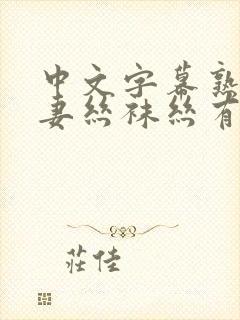 中文字幕熟
妻丝袜丝有
莊佳